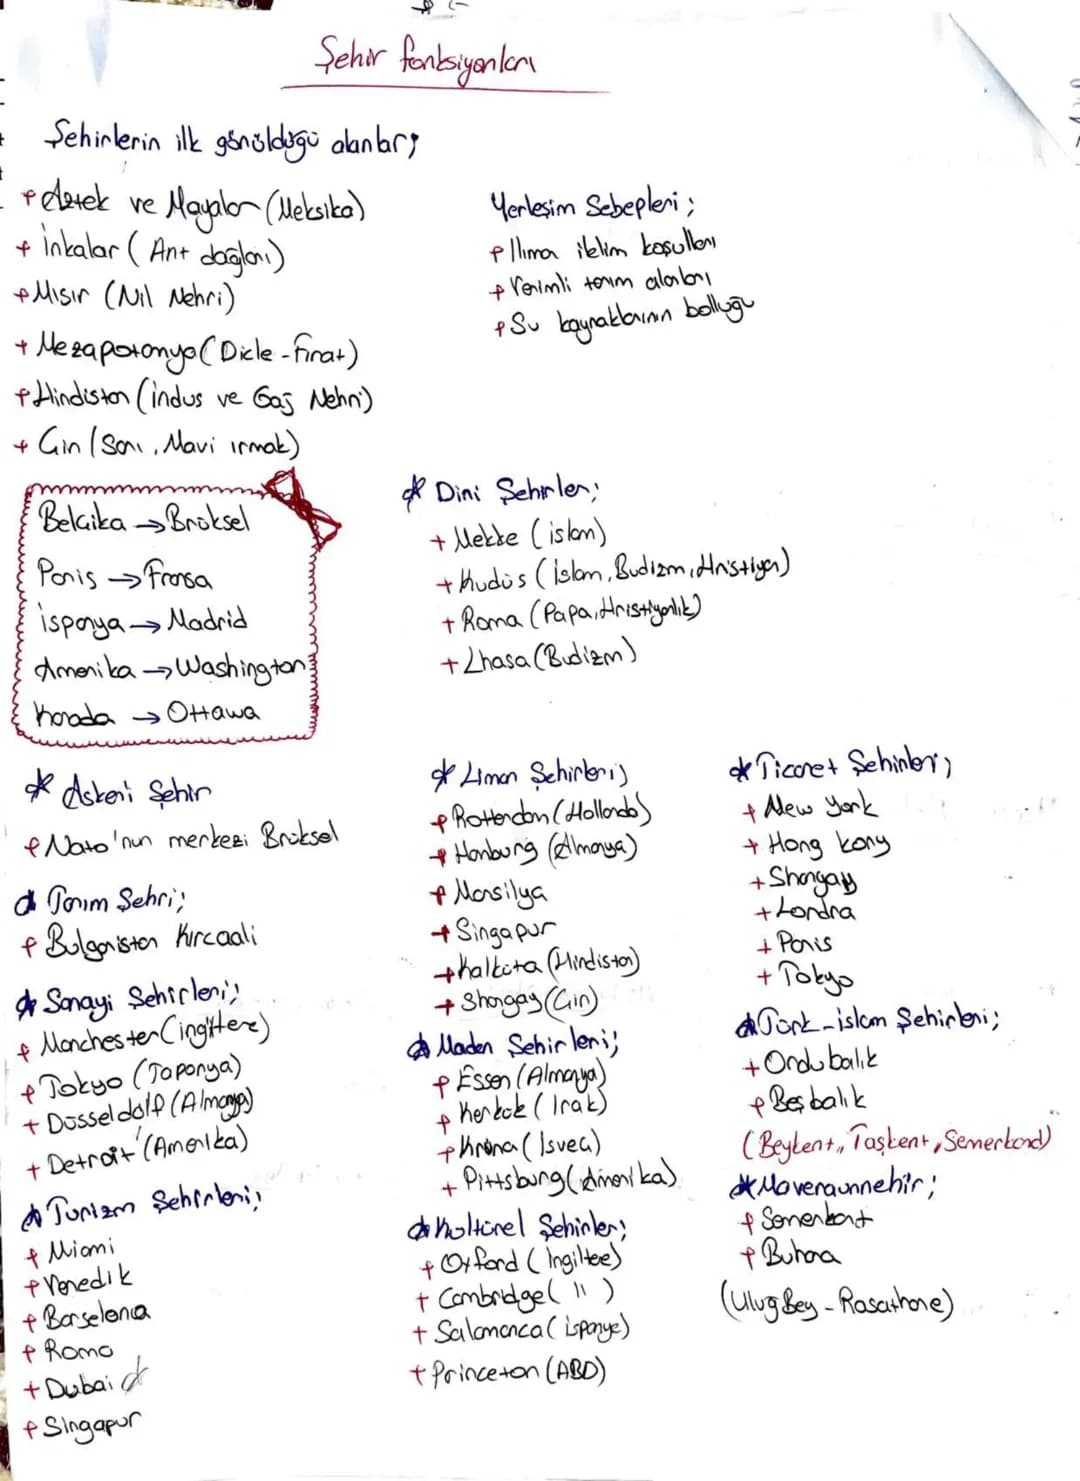 Şehir fonksiyonları
Şehirlerin ilk görüldüğü alanlar;
+ Aztek ve Mayalar (Meksika)
+ İnkalar ( Ant dağları)
+ Mısır (Nil Nehri)
+ Mezapotanya (Dicle - Fırat)
+ Hindistan (İndus ve Ganj Nehri)
+ Çin (Sarı, Mavi ırmak)
Yerleşim Sebepleri;
+ Ilıman iklim koşulları
+ Verimli tarım alanları
+ Su kaynaklarının bolluğu
Belçika → Brüksel
Paris → Fransa
İspanya → Madrid
Amerika → Washington
Kanada → Ottawa
* Dini Şehirler;
+ Mekke (islam)
+ Kudüs (İslam, Budizm, Hristiyan)
+ Roma (Papa, Hristiyanlık)
+ Lhasa (Budizm)
* Askeri Şehir
+ Nato'nun merkezi Brüksel
* Tarım Şehri;
+ Bulgaristan Kırcaali
* Sanayi Şehirleri;
+ Manchester (ingiltere)
+ Tokyo (Japonya)
+ Düsseldolf (Almanya)
+ Detroit (Amerika)
* Turizm Şehirleri;
+ Miami
+ Venedik
+ Barselona
+ Roma
+ Dubai *
+ Singapur
* Liman Şehirleri;
+ Rotterdan (Hollanda)
+ Hanburg (Almanya)
+ Marsilya
+ Singapur
+ Kalküta (Hindistan)
+ Shangay (Çin)
* Maden Şehirleri;
+ Essen (Almanya)
+ Kerkük ( Irak)
+ Kruna ( İsveç)
+ Pittsburg (Amerika)
* Kültürel Şehirler;
+ Oxford ( İngiltere)
+ Cambridge ( " )
+ Salamanca ( ispanya)
+ Princeton (ABD)
* Ticaret Şehirleri;
+ New york
+ Hong kong
+ Shangay
+ Londra
+ Paris
+ Tokyo
* Türk - islam Şehirleri;
+ Ordu balık
+ Beş balık
(Beykent, Taşkent, Semerkand)
* Maveraunnehir;
+ Semerkant
+ Buhara
(Uluğ Bey - Rasathane)